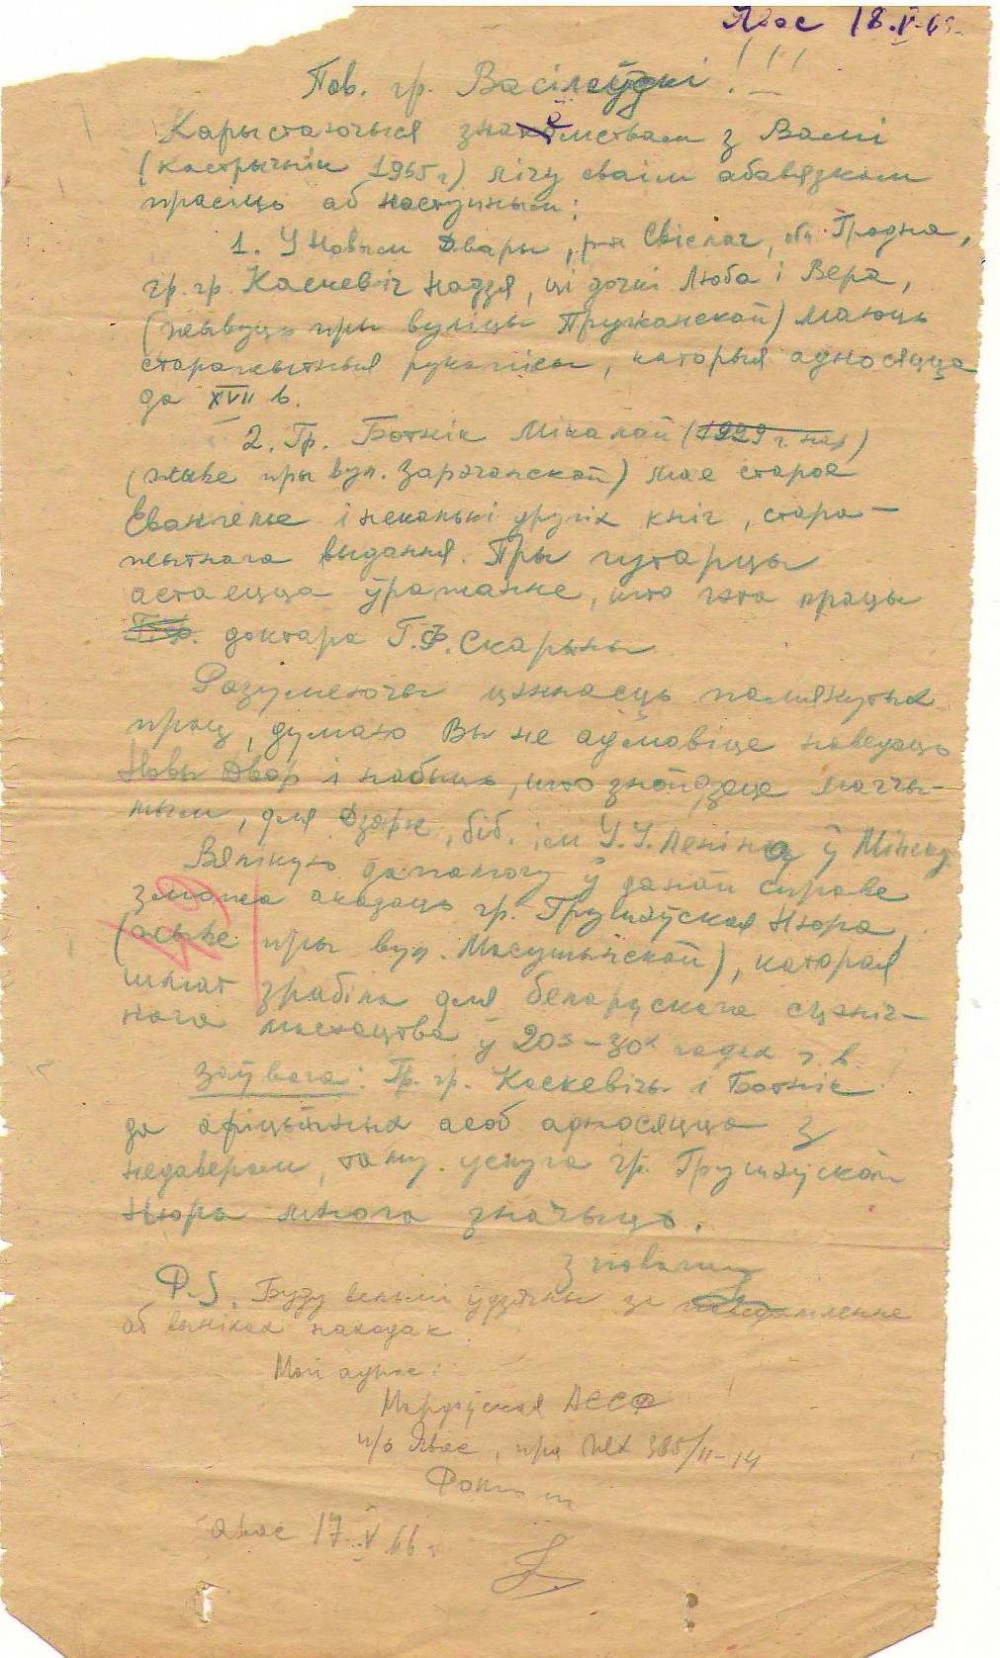 Явас 18.V-66
Пав. гр. Васілеўскі!!!
Карыстаючыся знаёмствам з Вамі
(кастрычнік 1965 г) лічу сваім абавязкам
прасіць аб наступным:
1. У Новым Двары, р-н Свіслач, обл. Гродна,
гр. гр. Каскевіч Надзя, ці дочкі Люба і Вера,
(жывуць пры вуліцы Пружанскай) маюць
старажытныя рукапісы, каторыя адносяцца
да XVII в.
2. Гр. Ботнік Мікалай (1929 г. нар)
(жыве пры вул. Зарэчанскай) мае старое
Евангелле і некалькі другіх кніг, стара-
жытнага выдання. Пры гутарцы
астаецца ўражанне, што гэта працы
доктара Г.Ф. Скарыны
Разумеючы цэннасць памянутых
прац, думаю Вы не адмовіце наведаць
Новы Двор і набыць, што знойдзеце магчы-
мым, для Дзярж. біб. ім У.І. Леніна ў Мінску.
Вялікую дапамогу ў данай справе
зможа аказаць гр. Грушэўская Нюра,
(жыве пры вул. Масушынскай), каторая
шмат зрабіла для беларускага сцэніч-
нага мастацтва ў 20х-30х гадах т. в.
Заўвага: Гр. гр. Каскевічы і Ботнік
да афіцыйных асоб адносяцца з
недаверам, таму услуга гр. Грушэўскай
Нюры многа значыць.
З павагай
P.S. Буду вельмі ўдзячны за паведамленне
аб выніках находак.
Мой адрас:
Мардоўская АССР
п/о Явас, п/я ЖХ 385/11-14
Явас 17.V.66 г